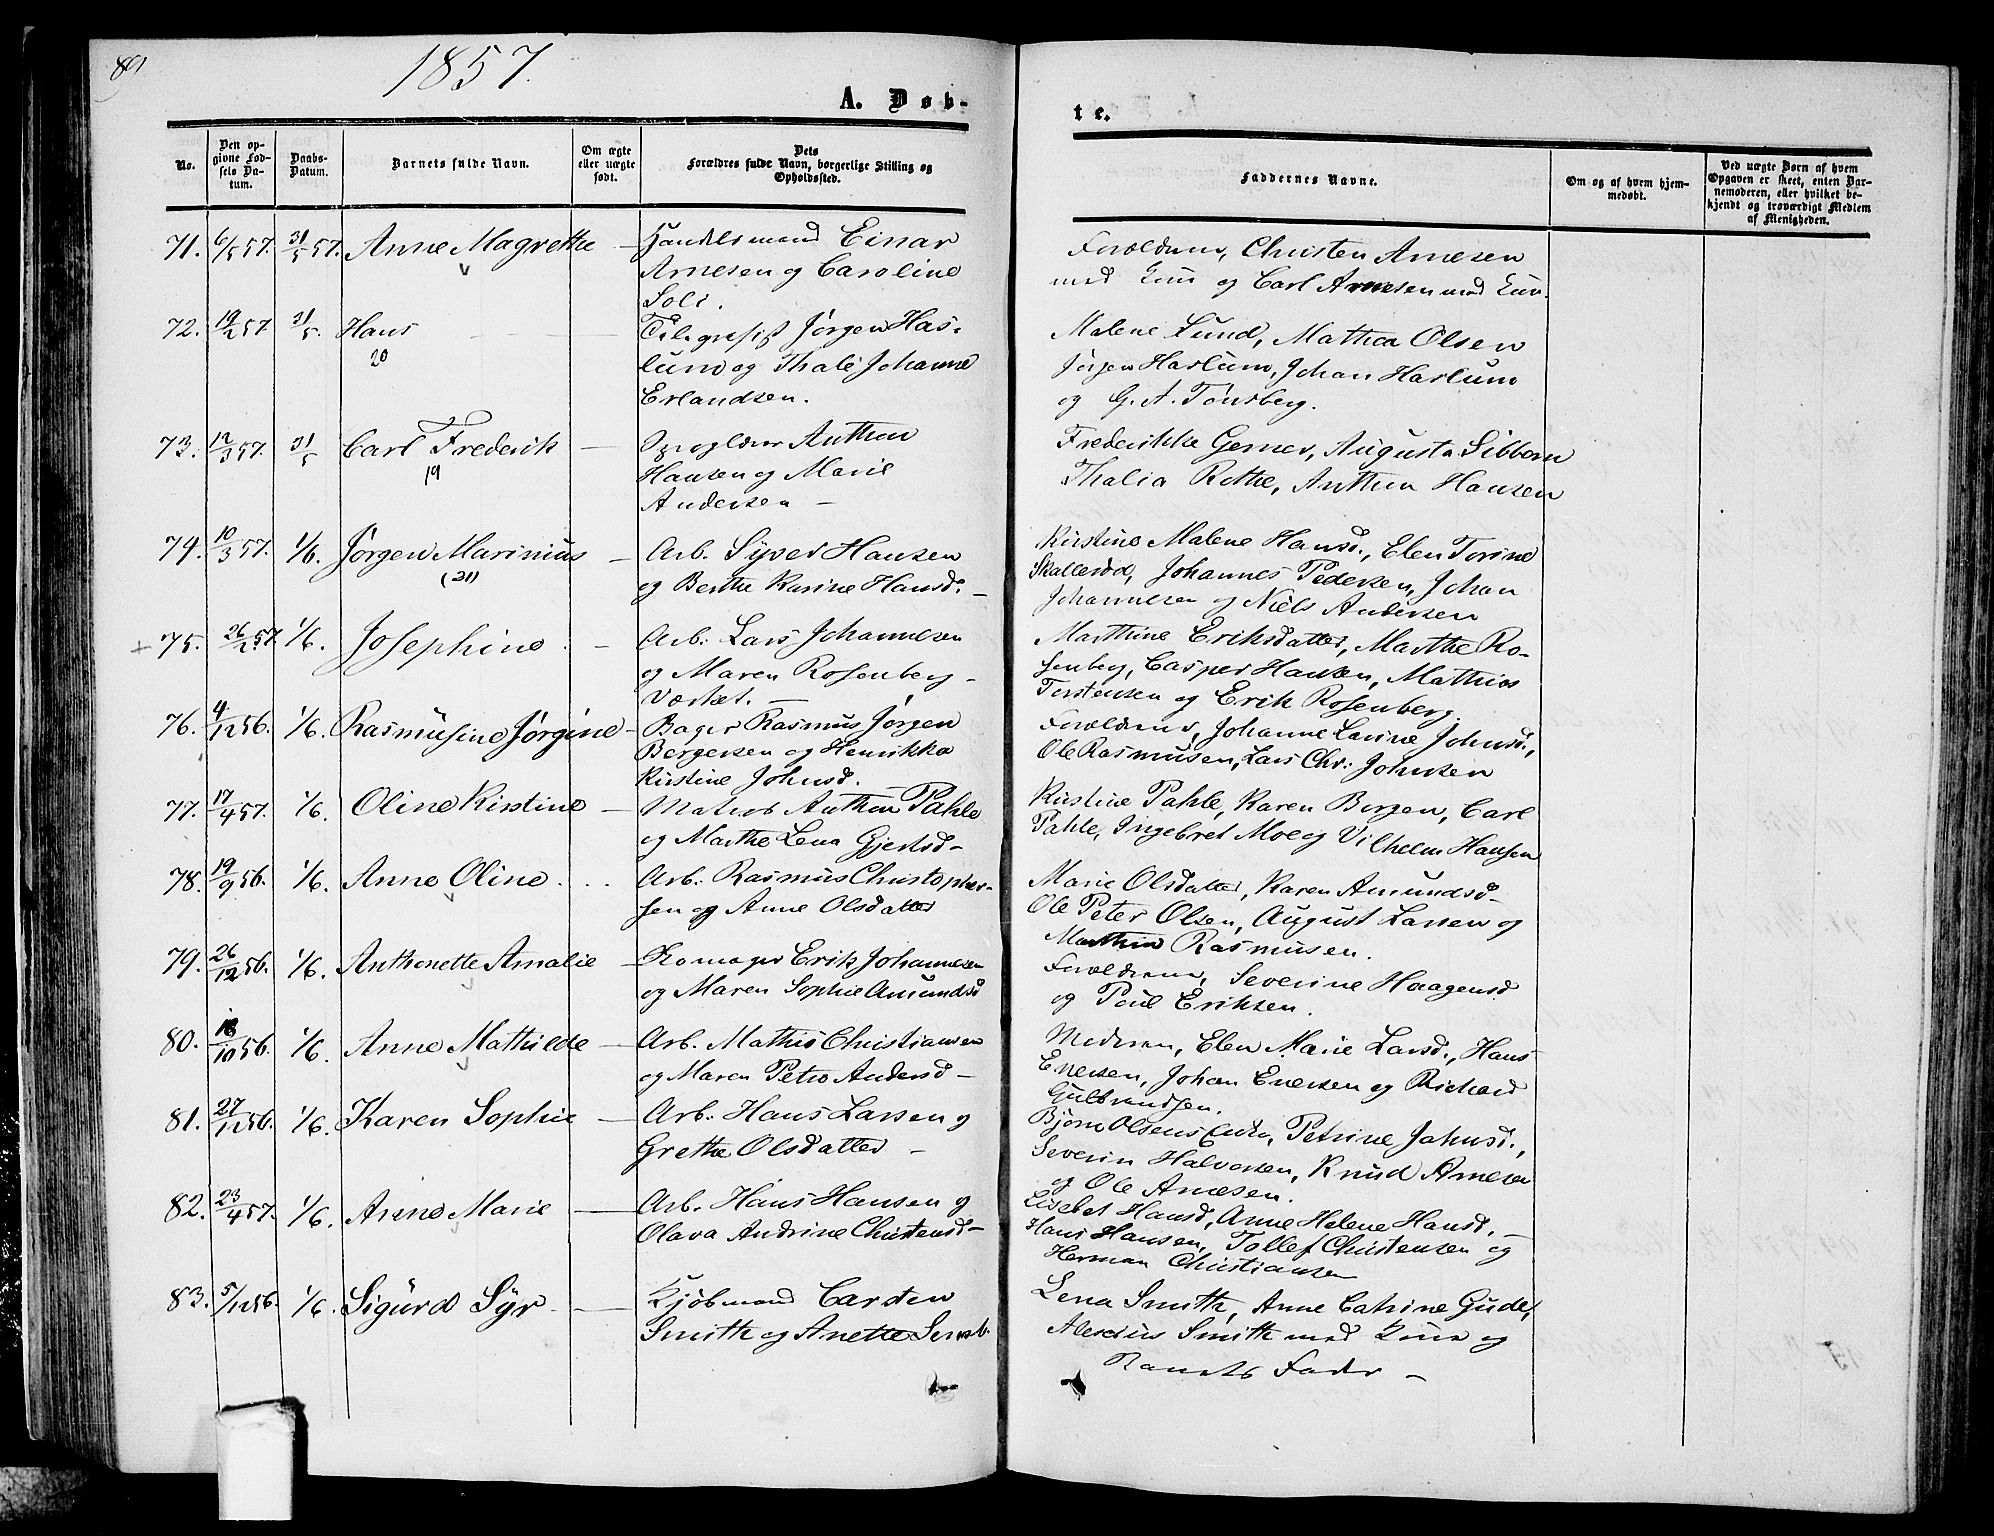 89
1857.
A. Døb-
te.
No.
Den op-
givne Fød-
sels Da-
tum.
Daabs-
Datum.
Barnets fulde Navn.
Om ægte
eller uægte
født.
Dets
Forældres fulde Navn, borgerlige Stilling og
Opholdssted.
Faddernes Navne.
Om og af hvem hjem-
medøbt.
Ved uægte Børn af hvem
Opgaven er skeet, enten Bar-
nemoderen, eller hvilket be-
kjendt og troværdigt Medlem
af Menigheden.
71. 6/5 57. 31/5 57. Anne Magrethe — Handelsmand Einar
Arnesen og Caroline
Soli.
Forældrene, Christen Arnesen
med Kone og Carl Arnesen med Kone.
72. 19/2 57 31/5. Hans
20
Telegrafist Jørgen Has-
lum og Thale Johanne
Erlandsen.
Malene Lund, Mathea Olsen
Jørgen Haslum, Johan Haslum
og G. A. Tønsberg.
73. 12/3 57. 31/5 Carl Frederik —
19
Opsynsmand Anthon
Hansen og Marie
Andersen —
Frederikke Gerner, Augusta Sibbern
Thalia Rothe, Anthon Hansen
74. 10/3 57. 1/6. Jørgen Marinius —
(21)
Arb. Syver Hansen
og Berthe Karine Hansd. —
Kirstine Malene Hansd., Elen Torine
Skallerød, Johannes Pedersen, Johan
Johannesen og Niels Andersen
+ 75. 26/2 57 1/6. Josephine. - Arb: Lars Johannesen
og Maren Rosenberg -
Værket. —
Marthine Eriksdatter, Marthe Ro-
senberg, Casper Hansen, Mathias
Torstensen og Erik Rosenberg.
76. 4/12 56. 1/6. Rasmusine Jørgine - Bager Rasmus Jørgen
Bergersen og Henrikka
Kirstine Johnsd.
Forældrene, Johanne Larine Johnsd.,
Ole Rasmusen, Lars Chr: Johnsen
77. 17/4 57. 1/6. Oline Kirstine — Matros Anthon Pahle
og Marthe Lena Gjertsd-
Kirstine Pahle, Karen Borgen, Carl
Pahle, Ingebret Moe og Vilhelm Hansen
78. 19/9 56. 1/6. Anne Oline. . . Arb: Rasmus Christopher-
sen og Anne Olsdatter
Marie Olsdatter, Karen Amundsd-
Ole Peter Olsen, August Larsen og
Mathia Rasmusen.
79. 26/12 56. 1/6. Anthonette Amalie — Erik Johannesen
og Maren Sophie Amundsd
Forældrene, Severine Haagensd
og Poul Eriksen.
80. 18/10 56. 1/6. Anne Mathilde — Arb. Mathis Christiansen
og Maren Petra Andersd -
Moderen, Elen Marie Larsd., Hans
Enersen, Johan Enersen og Richard
Gulbrandsen.
81. 27/12 56. 1/6. Karen Sophie — Arb: Hans Larsen og
Grethe Olsdatter -
Bjørn Olsens Enke, Petrine Johnsd.,
Severin Halvorsen, Knud Arnesen
og Ole Arnesen.
82. 23/4 57. 1/6. Anne Marie — Arb: Hans Hansen og
Olava Andrine Christensd-
Lisebet Hansd, Anne Helene Hansd. —
Hans Hansen, Tollef Christensen og
Herman Christiansen
83. 5/12 56. 1/6. Sigurd Syr. — Kjøbmand Carsten
Smith og Anette
Lena Smith, Anne Catrine Gude,
Alexius Smith med Kone og
Barnets Fader —